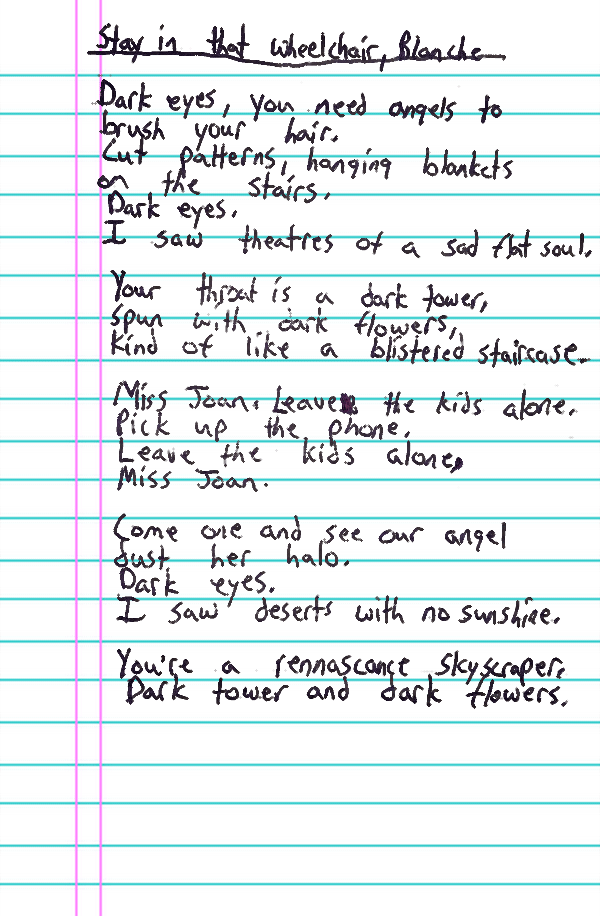 Stay in that wheelchair, Blanche
Dark eyes, you need angels to
brush your hair.
Cut patterns, hanging blankets
on the stairs.
Dark eyes.
I saw theatres of a sad flat soul.
Your throat is a dark tower,
spun with dark flowers,
Kind of like a blistered staircase.
Miss Joan. Leave the kids alone.
Pick up the phone.
Leave the kids alone,
Miss Joan.
Come one and see our angel
dust her halo.
Dark eyes.
I saw deserts with no sunshine.
You're a rennascance skyscraper.
Dark tower and dark flowers.